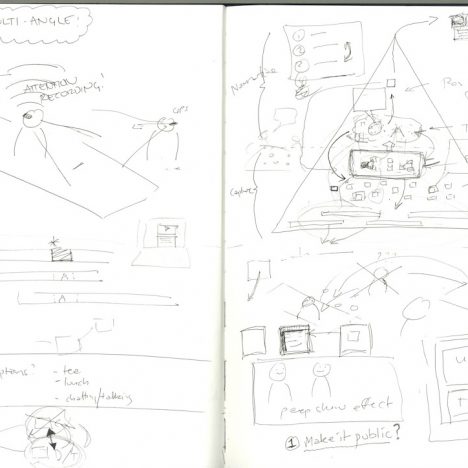 ULTI-ANGLE!
ATTENTION
RECORDING!
GPS
A
A
- tee
- lunch
- chatting/talking
1
2
3
Narrative
Capture
peep show effect
1 Make it public?
U
T